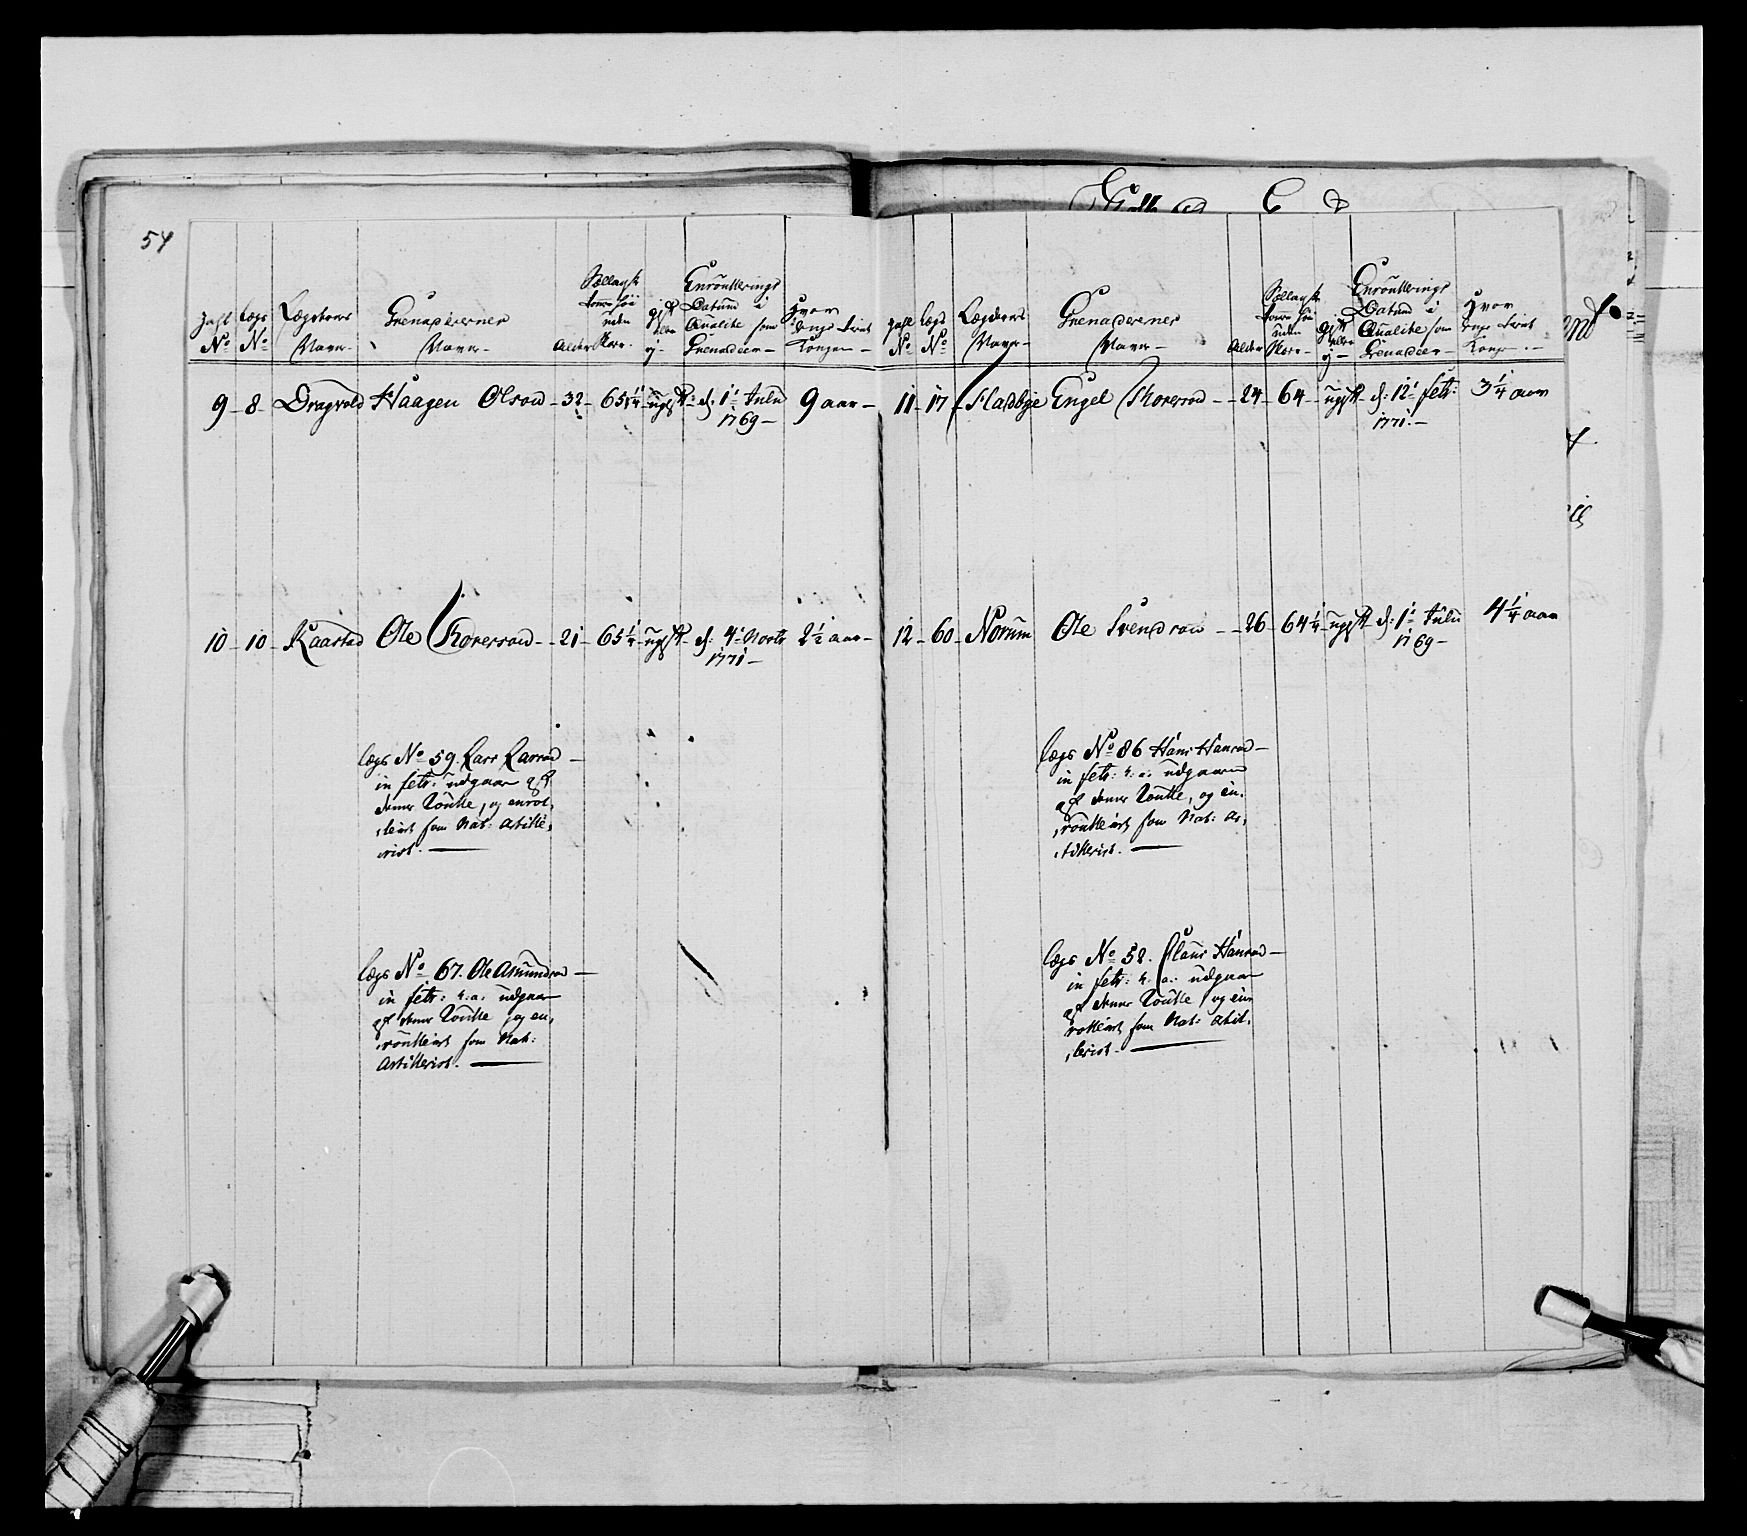 54
Zahl No
Lægs No
Lægdens Navn
Grenaderernes Navn
Alder
Giift eller ej
Enroullerings Datum i Qualite som Grenadeer
Hvor længe tient Kongen
9 8 Dragvold Haagen Olsen 32 65 1/4 ugift d: 1te Julii 1769 9 aar
10 10 Kaarstad Ole Thoresen 21 65 1/4 ugift d: 4de Marts 1771 2 1/2 aar
Lægs No 59. Lars Larsen
in febr: udgaar af
denne Roulle, og enrol,
,lert som Nat: Artille,
,rist.
Lægs No 67. Ole Asmundsen
in febr: h: a: udgaar
af denne Roulle og en,
,roullert som Nat:
Artillerist.
Zahl No
Lægs No
Lægdens Navn
Grenaderernes Navn
Alder
Gift eller ej
Enroullerings Datum i Qualite som Grenadeer
Hvor længe tient Kongen
11 17 Fladbye Engel Thoresen 24 64 ugift d: 12te febr: 1771. 3 1/4 aar
12 60 Norum Ole Svendsen 26 64 1/4 ugift d: 1te Julii 1769 4 1/4 aar
Lægs No 86 Hans Hansen
in febr: h: a: udgaar
af denne Roulle, og en,
,roullert som Nat: Ar,
,tillerist.
Lægs No 52. Claus Hansen
in febr: h: a: udgaar
af denne Roulle, og en
rollert som Nat: Artil,
,lerist.